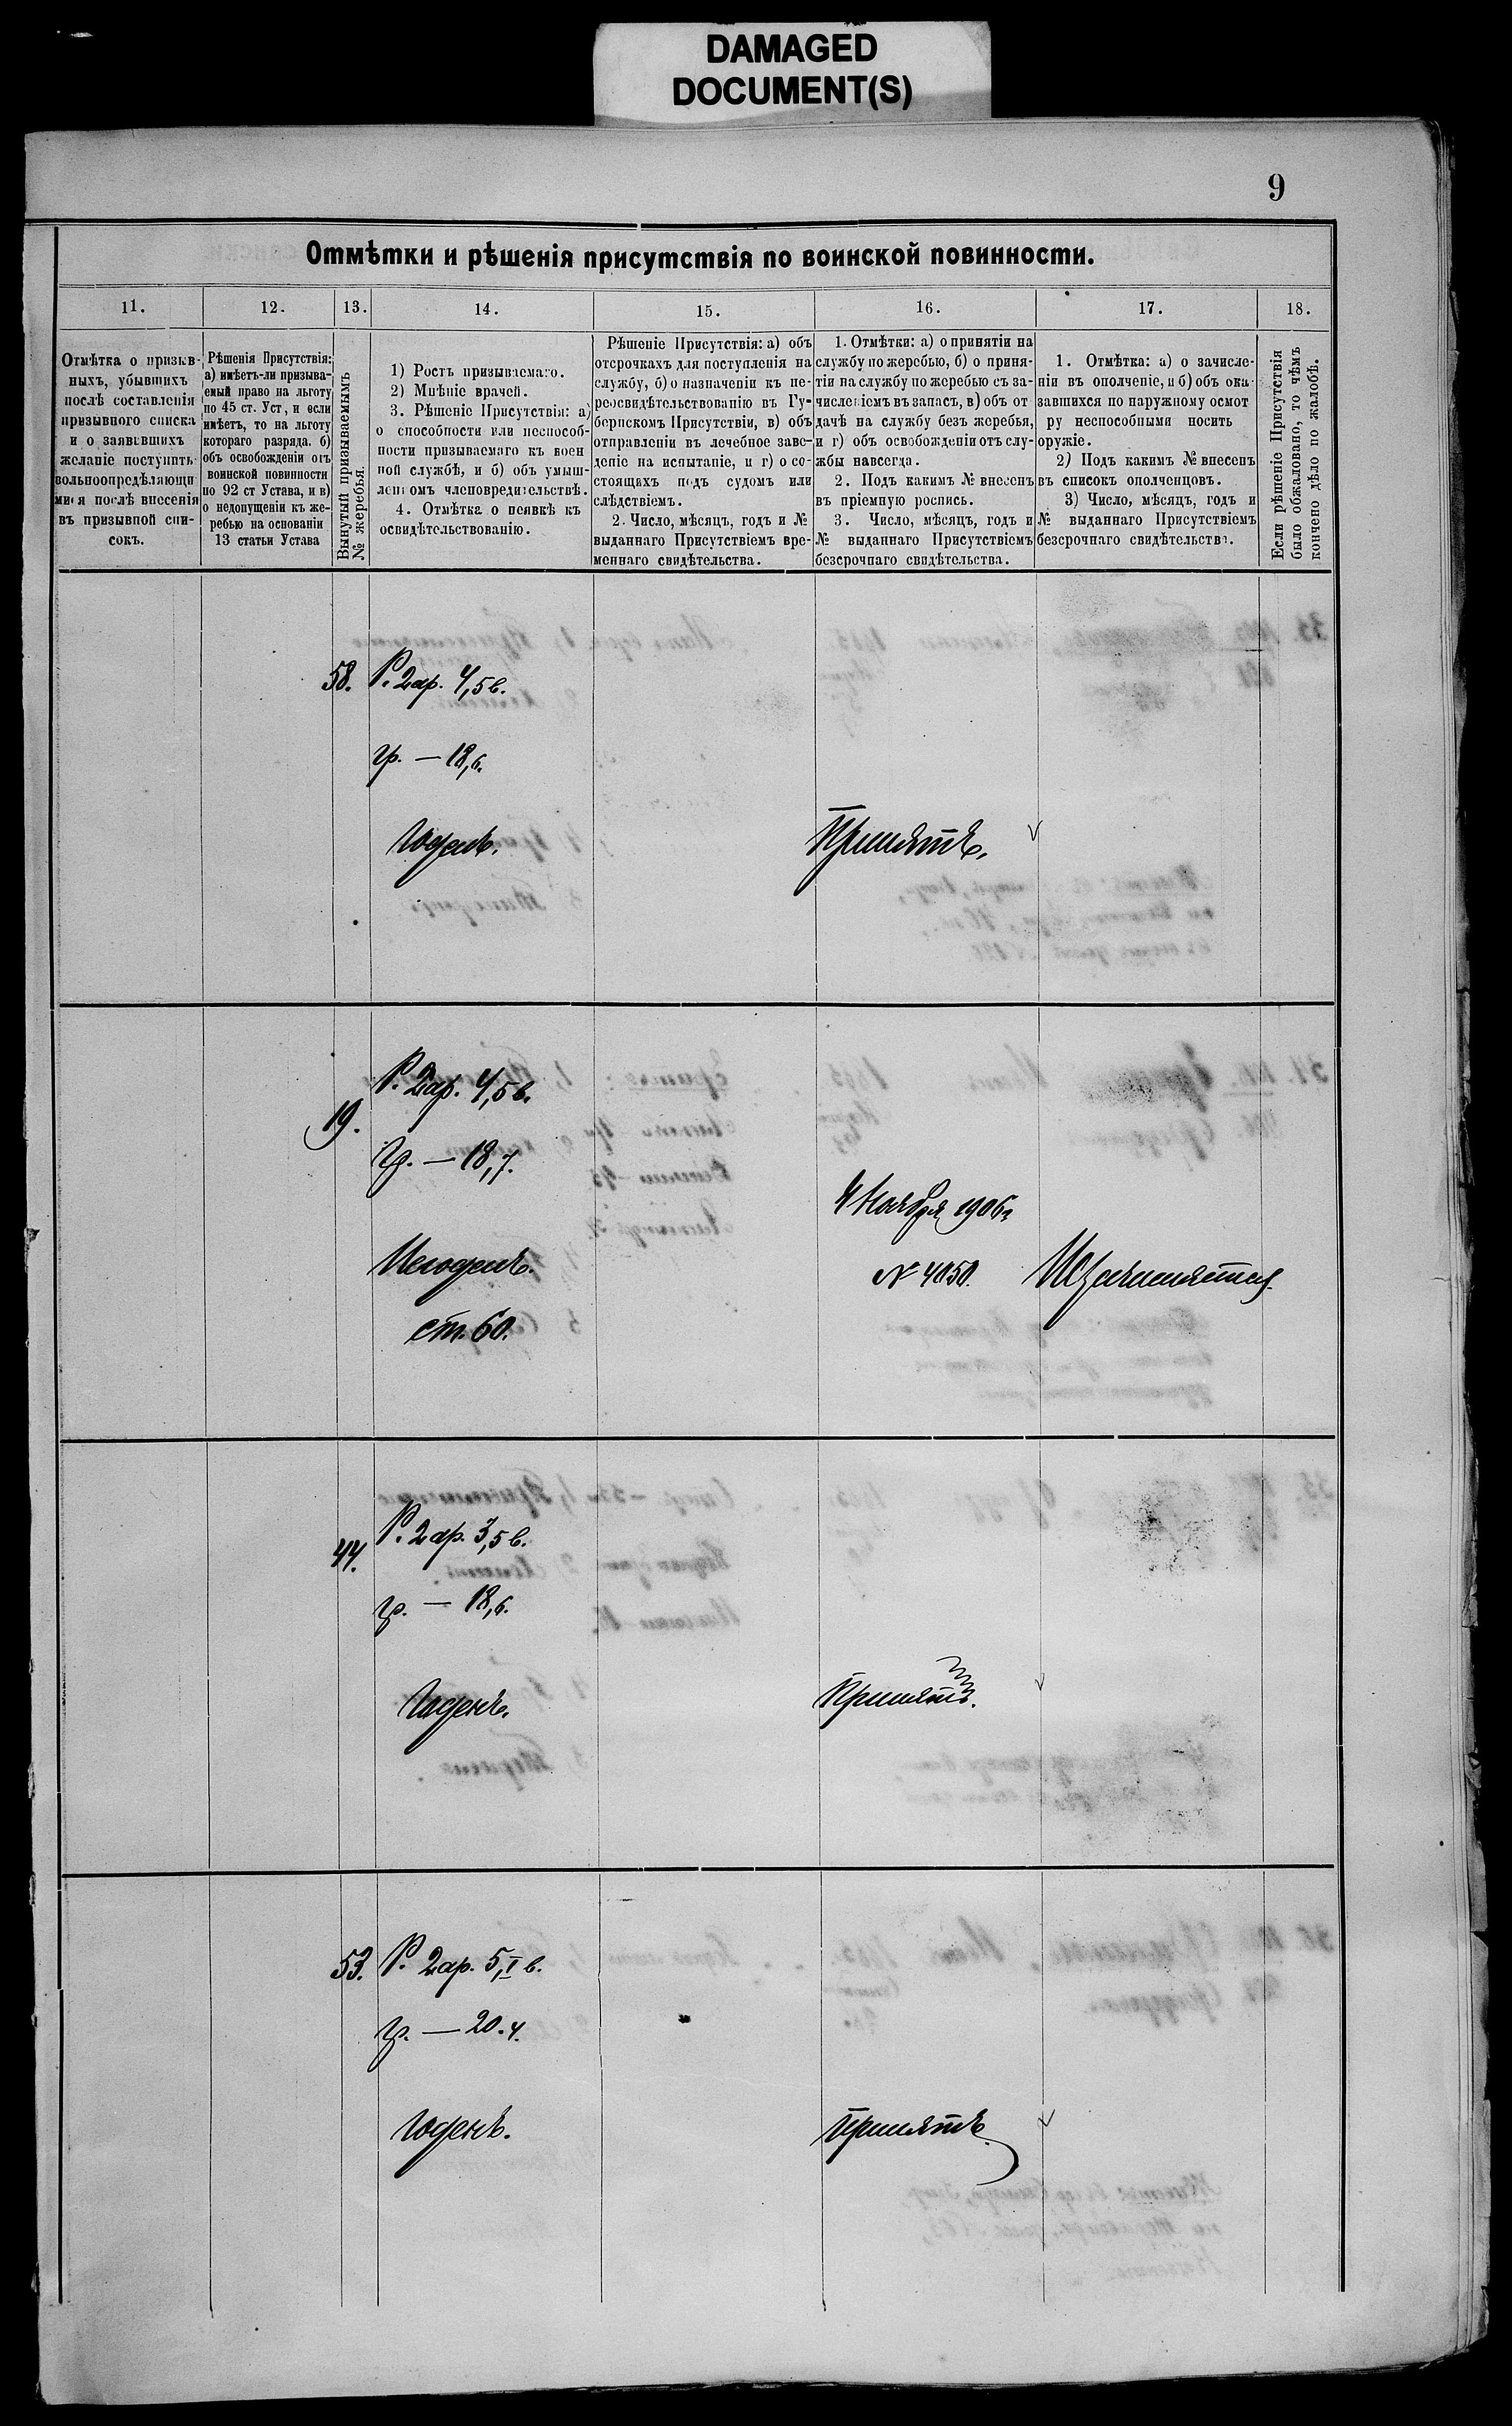 DAMAGED
DOCUMENT(S)
9
Отмѣтки и рѣшенія присутствія по воинской повинности.
11.
12.
13.
14.
15.
16.
17.
18.
Отмѣтка о призыв-
ныхъ, убывшихъ
послѣ составленія
призывного списка
и о заявившихъ
желаніе поступить
вольноопредѣляющи
мися послѣ внесенія
въ призывной спи-
сокъ.
Рѣшенія Присутствія:
а) имѣетъ-ли призыва-
емый право на льготу
по 45 ст. Уст, и если
имѣетъ, то на льготу
котораго разряда. б)
объ освобожденіи отъ
воинской повинности
по 92 ст Устава, и в)
о недопущеніи къ же-
ребью на основаніи
13 статьи Устава
Вынутый призываемымъ
№ жеребья.
1) Ростъ призываемаго.
2) Мнѣніе врачей.
3. Рѣшеніе Присутствія: а)
о способности или неспособ-
ности призываемаго къ воен
ной службѣ, и б) объ умыш-
ленномъ членовредительствѣ.
4. Отмѣтка о неявкѣ къ
освидѣтельствованію.
Рѣшеніе Присутствія: а) объ
отсрочкахъ для поступленія на
службу, б) о назначеніи къ пе-
реосвидѣтельствованію въ Гу-
бернскомъ Присутствіи, в) объ
отправленіи въ лечебное заве-
деніе на испытаніе, и г) о со-
стоящихъ подъ судомъ или
слѣдствіемъ.
2. Число, мѣсяцъ, годъ и №
выданнаго Присутствіемъ вре-
меннаго свидѣтельства.
1. Отмѣтки: а) о принятіи на
службу по жеребью, б) о приня-
тіи на службу по жеребью съ за-
численіемъ въ запасъ, в) объ от
дачѣ на службу безъ жеребья,
и г) объ освобожденіи отъ слу-
жбы навсегда.
2. Подъ какимъ № внесенъ
въ пріемную роспись.
3. Число, мѣсяцъ, годъ и
№ выданнаго Присутствіемъ
безсрочнаго свидѣтельства.
1. Отмѣтка: а) о зачисле-
ніи въ ополченіе, и б) объ ока-
завшихся по наружному осмот
ру неспособными носить
оружіе.
2) Подъ какимъ № внесенъ
въ списокъ ополченцовъ.
3) Число, мѣсяцъ, годъ и
№ выданнаго Присутствіемъ
безсрочнаго свидѣтельства.
Если рѣшеніе Присутствія
было обжаловано, то чѣмъ
кончено дѣло по жалобѣ.
58. Р. 2 ар. 4,5 в.
гр. — 18,6.
Годенъ. Принятъ.
19. Р. 2 ар. 4,5 в.
гр. — 18,7.
4 Ноября 1906 г.
Негоденъ. № 4050.
ст. 60.
44. Р. 2 ар. 3,5 в.
гр. — 18,6.
Годенъ. Принятъ.
53. Р. 2 ар. 5,1 в.
гр. — 20.4.
Годенъ. Принятъ